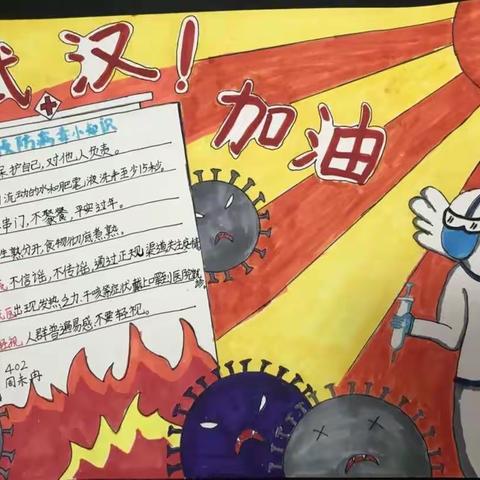 武汉！
加油
防病毒小知识
保护自己，对他人负责。
流动的水和肥皂液洗手至少15秒。
串门，不聚餐，平安过年。
生熟分开，食物彻底煮熟。
不信谣，不传谣，通过正规渠道关注疫情
出现发热乏力、干咳等症状戴上口罩到医院就诊
人群普遍易感，不要轻视。
402